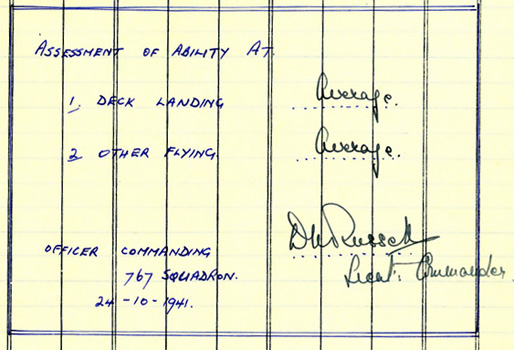 ASSESSMENT OF ABILITY AT.
1. DECK LANDING Average.
2 OTHER FLYING. Average.
DW Russell
OFFICER COMMANDING Lieut. Commander.
767 SQUADRON.
24-10-1941.